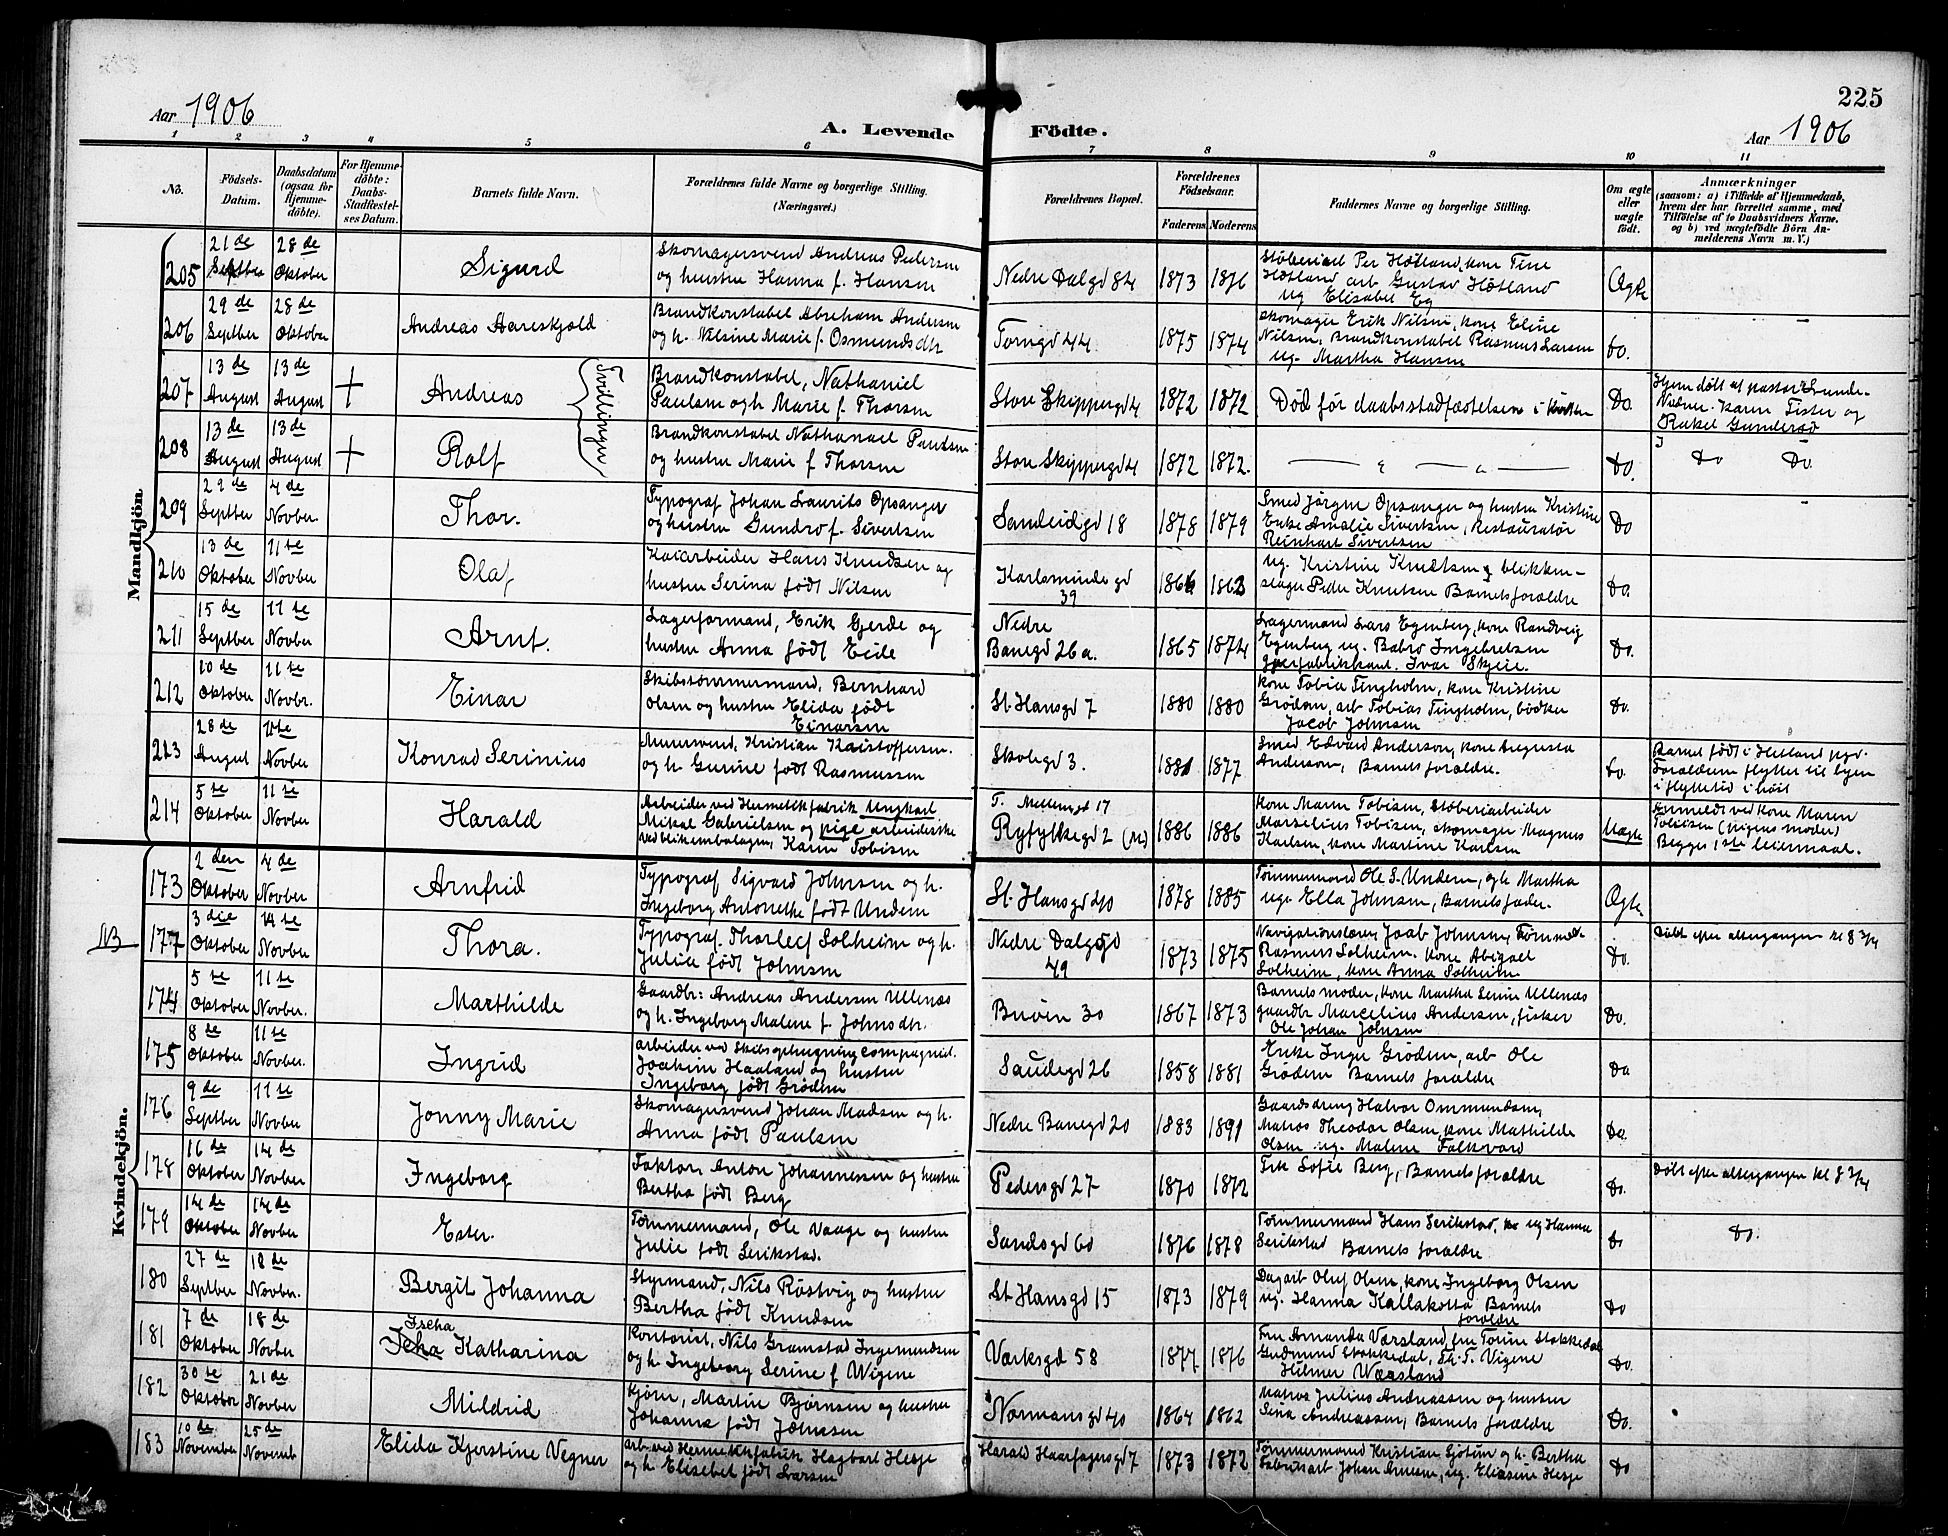 225
Aar 1906
A. Levende Födte.
Aar 1906
1 2 3 4 5 6 7 8 9 10 11
No.
Födsels-Datum.
Daabsdatum (ogsaa for Hjemme-döbte).
For Hjemme-döbte: Daabs-Stadfæstel-ses Datum.
Barnets fulde Navn.
Forældrenes fulde Navne og borgerlige Stilling.
(Næringsvei.)
Forældrenes Bopæl.
Forældrenes Födselsaar.
Faderens Moderens
Faddernes Navne og borgerlige Stilling.
Om ægte eller uægte födt.
Anmærkninger
(saasom: a) i Tilfælde af Hjemmedaab, hvem der har forrettet samme, med Tilföielse af to Daabsvidners Navne, og b) ved uægtefödte Börn An-melderens Navn m. V.)
Mandkjön.
205 21de Septber 28de Oktober Sigurd
Skomagersvend Andreas Pedersen
og hustru Hanna f. Hansen
Nedre Dalgd 84 1873 1876
Støberiarb Per Høtland, kone Tine
Høtland arb Gustav Høtland
ug Elisabet Eg
Ægte
206 29de Septber 28de Oktober Andreas Aareskjold
Brandkonstabel Abraham Andersen
og h. Nilsine Marie f. Osmundsdtr
Torngd 44. 1875 1874
Skomager Erik Nilsen, kone Eline
Nilsen, Brandkonstabel Rasmus Larsen
ug. Martha Hansen
do.
207 13de August 13de August + Andreas
Tvillinger
Brandkonstabel, Nathaniel
Paulsen og h Marie f. Thorsen
Store Skippergd 4 1872 1872
Død før daabsstadfæstelsen i kirken
Do.
Hjem døbt af pastor Lunde-
Vidner. Karen Tister og
Rakel Gundersø
208 13de August 13de August + Rolf
Brandkonstabel Nathanael Paulsen
og hustru Marie f Thorsen
Store Skippergd 4 1872 1872.
Do. Do Do.
209 29de Septber 4de Novber. Thor.
Typograf Johan Laurits Opsanger
og hustru Gundro f. Sivertsen
Sandeidgd 18 1878 1879
Smed Jørgen Opsanger og hustru Kristine
Enke Amalie Sivertsen, Restauratør
Reinhart Sivertsen
Do
210 13de Oktober 11te Novber Olaf
Kaiarbeider Hans Knudsen og
hustru Serina født Nilsen
Karlsminde gd
39 1866 1863
ug. Kristine Knudsen, blikken-
slager Peder Knutsen Barnets forældre
Do.
211 15de Septber 11te Novber Arnt.
Lagerformand, Erik Gjerde og
hustru Anna født Eide
Nedre
Banegd 26a. 1865 1874
Lagermand Lars Egenberg, kone Randveig
Egenberg ug. Babro Ingebretsen
Gjærfabrikkant. Ivar Skjeie.
Do.
212 10de Oktober 11te Novbr. Einar
Skibstømmermand, Bernhard
Olsen og hustru Elida født
Einarsen
St. Hansgd 7 1880 1880
Kone Tobia Tingholm, kone Kristine
Grødem, arb Tobias Tingholm, bødker
Jacob Johnsen
Do.
213 28de August 11te Novber Konrad Serinius
Murersvend, Kristian Kristoffersen.
og h. Gurine født Rasmussen
Skolegd 3. 1881 1877
Smed Edvard Anderson, kone Augusta
Anderson, Barnets forældre.
do.
Barnet født i Hetland pgd.
Forældrene flyttet til byen
i flyttetid i høst
214 5te Oktober 11te Novber Harald
Arbeider ved Hermetikfabrik Ungkarl
Mikal Gabrielsen og pige arbeiderske
ved blikemballagen, Karen Tobisen
T. Mellemgt 17
Ryfylkegd 2 (M) 1886 1886
Kone Maren Tobisen, støberiarbeider
Marselius Tobisen, skomager Magnus
Karlsen, kone Martine Karlsen
Uægte
Anmeldt ved kone Maren
Tobisen (pigens moder)
Begges 1ste leiermaal.
Kvindekjön.
173 2den Oktober 4de Novber Arnfrid
Typograf Sigvard Johnsen og h.
Ingeborg Antonette født Undem
St. Hansgd 40 1878 1885
Tømmermand Ole S. Undem, og h Martha
ug. Ella Johnsen, Barnets fader.
Ægte
NB 177 3die Oktober 14te Novber Thora.
Typograf. Thorleif Solheim og h.
Julia født Johnsen
Nedre Dalgd
49 1873 1875
Navigationslærer Joab Johnsen, Tømmerm
Rasmus Solheim. kone Abigael
Solheim, kone Anna Solheim
Do.
Døbt efter altergangen kl 8 3/4
174 5te Oktober 11te Novber. Marthilde
Gaardbr: Andreas Andersen Ullenæs
og h. Ingeborg Malene f. Johnsdtr.
Buøen 30 1867 1873
Barnets moder, kone Martha Serine Ullenæs
gaardbr Marcelius Andersen, fisker
Ole Johan Johnsen
Do.
175 8de Oktober 11te Novber. Ingrid
arbeider ved Skibsophugning compagnid.
Joakim Haaland og hustru
Ingeborg født Grødem
Saudegd 26 1858 1881
Enke Inger Grødem, arb Ole
Grødem Barnets forældre
Do
176 9de Septber 11te Novber Jonny Marie
Skomagersvend Johan Madsen og h.
Anna født Paulsen
Nedre Banegd 20 1883 1891
Gaardsdreng Halvor Ommundsen,
Matros Theodor Olsen, kone Mathilde
Olsen ug. Malene Falkvard
Do.
178 16de Oktober 14de Novber Ingeborg
Faktor Anton Johannessen og hustru
Bertha født Berg
Pedersgd 27 1870 1872
Frk Sofie Berg, Barnets forældre
Do.
Døbt efter altergangen kl 8 3/4
179 14de Oktober 14de Novber Ester.
Tømmermand, Ole Vaage og hustru
Julie født Serikstad.
Sandsgd 60 1876 1878
Tømmermand Hans Serikstad, ug Hanna
Serikstad Barnets forældre
Do Do.
180 27de Septber 18de Novber. Bergit Johanna
Styrmand, Nils Røstvig og hustru
Bertha født Knudsen
St Hansgd 15 1873 1879
Dagarb Oluf Olsen, kone Ingeborg Olsen
ug. Hanna Kallakotta Barnets
forældre
Do
181 7de Oktober 18de Novber Ischa
Katharina
Kontorist, Nils Gramstad Ingemundsen
og h. Ingeborg Serine f Wigene
Værksgd 58 1877 1876
Fru Amanda Værsland, fru Torine Stokkedal
Gudmund Stokkedal, Th. T. Vigene
Hilmer Wærsland
Do.
182 30te Oktober 21de Novber Mildrid
Kjører, Martin Bjørnsen og hustru
Johanna født Johnsen
Normansgd 40 1864 1862
Matros Julius Andreassen og hustru
Sina Andreassen, Barnets forældre
Do.
183 10de November 25de Novemb Elida Kjerstine Vegner
arb. ved Hermetikfabrik Hagbart Hesje
og h. Elisebet født Larsen
Harald Haarfagersgd 7 1873 1872
Tømmermand Kristian Gjøtun og h. Bertha
Fabrikarb Johan Amene, ug. Eliasine Hesje
Do